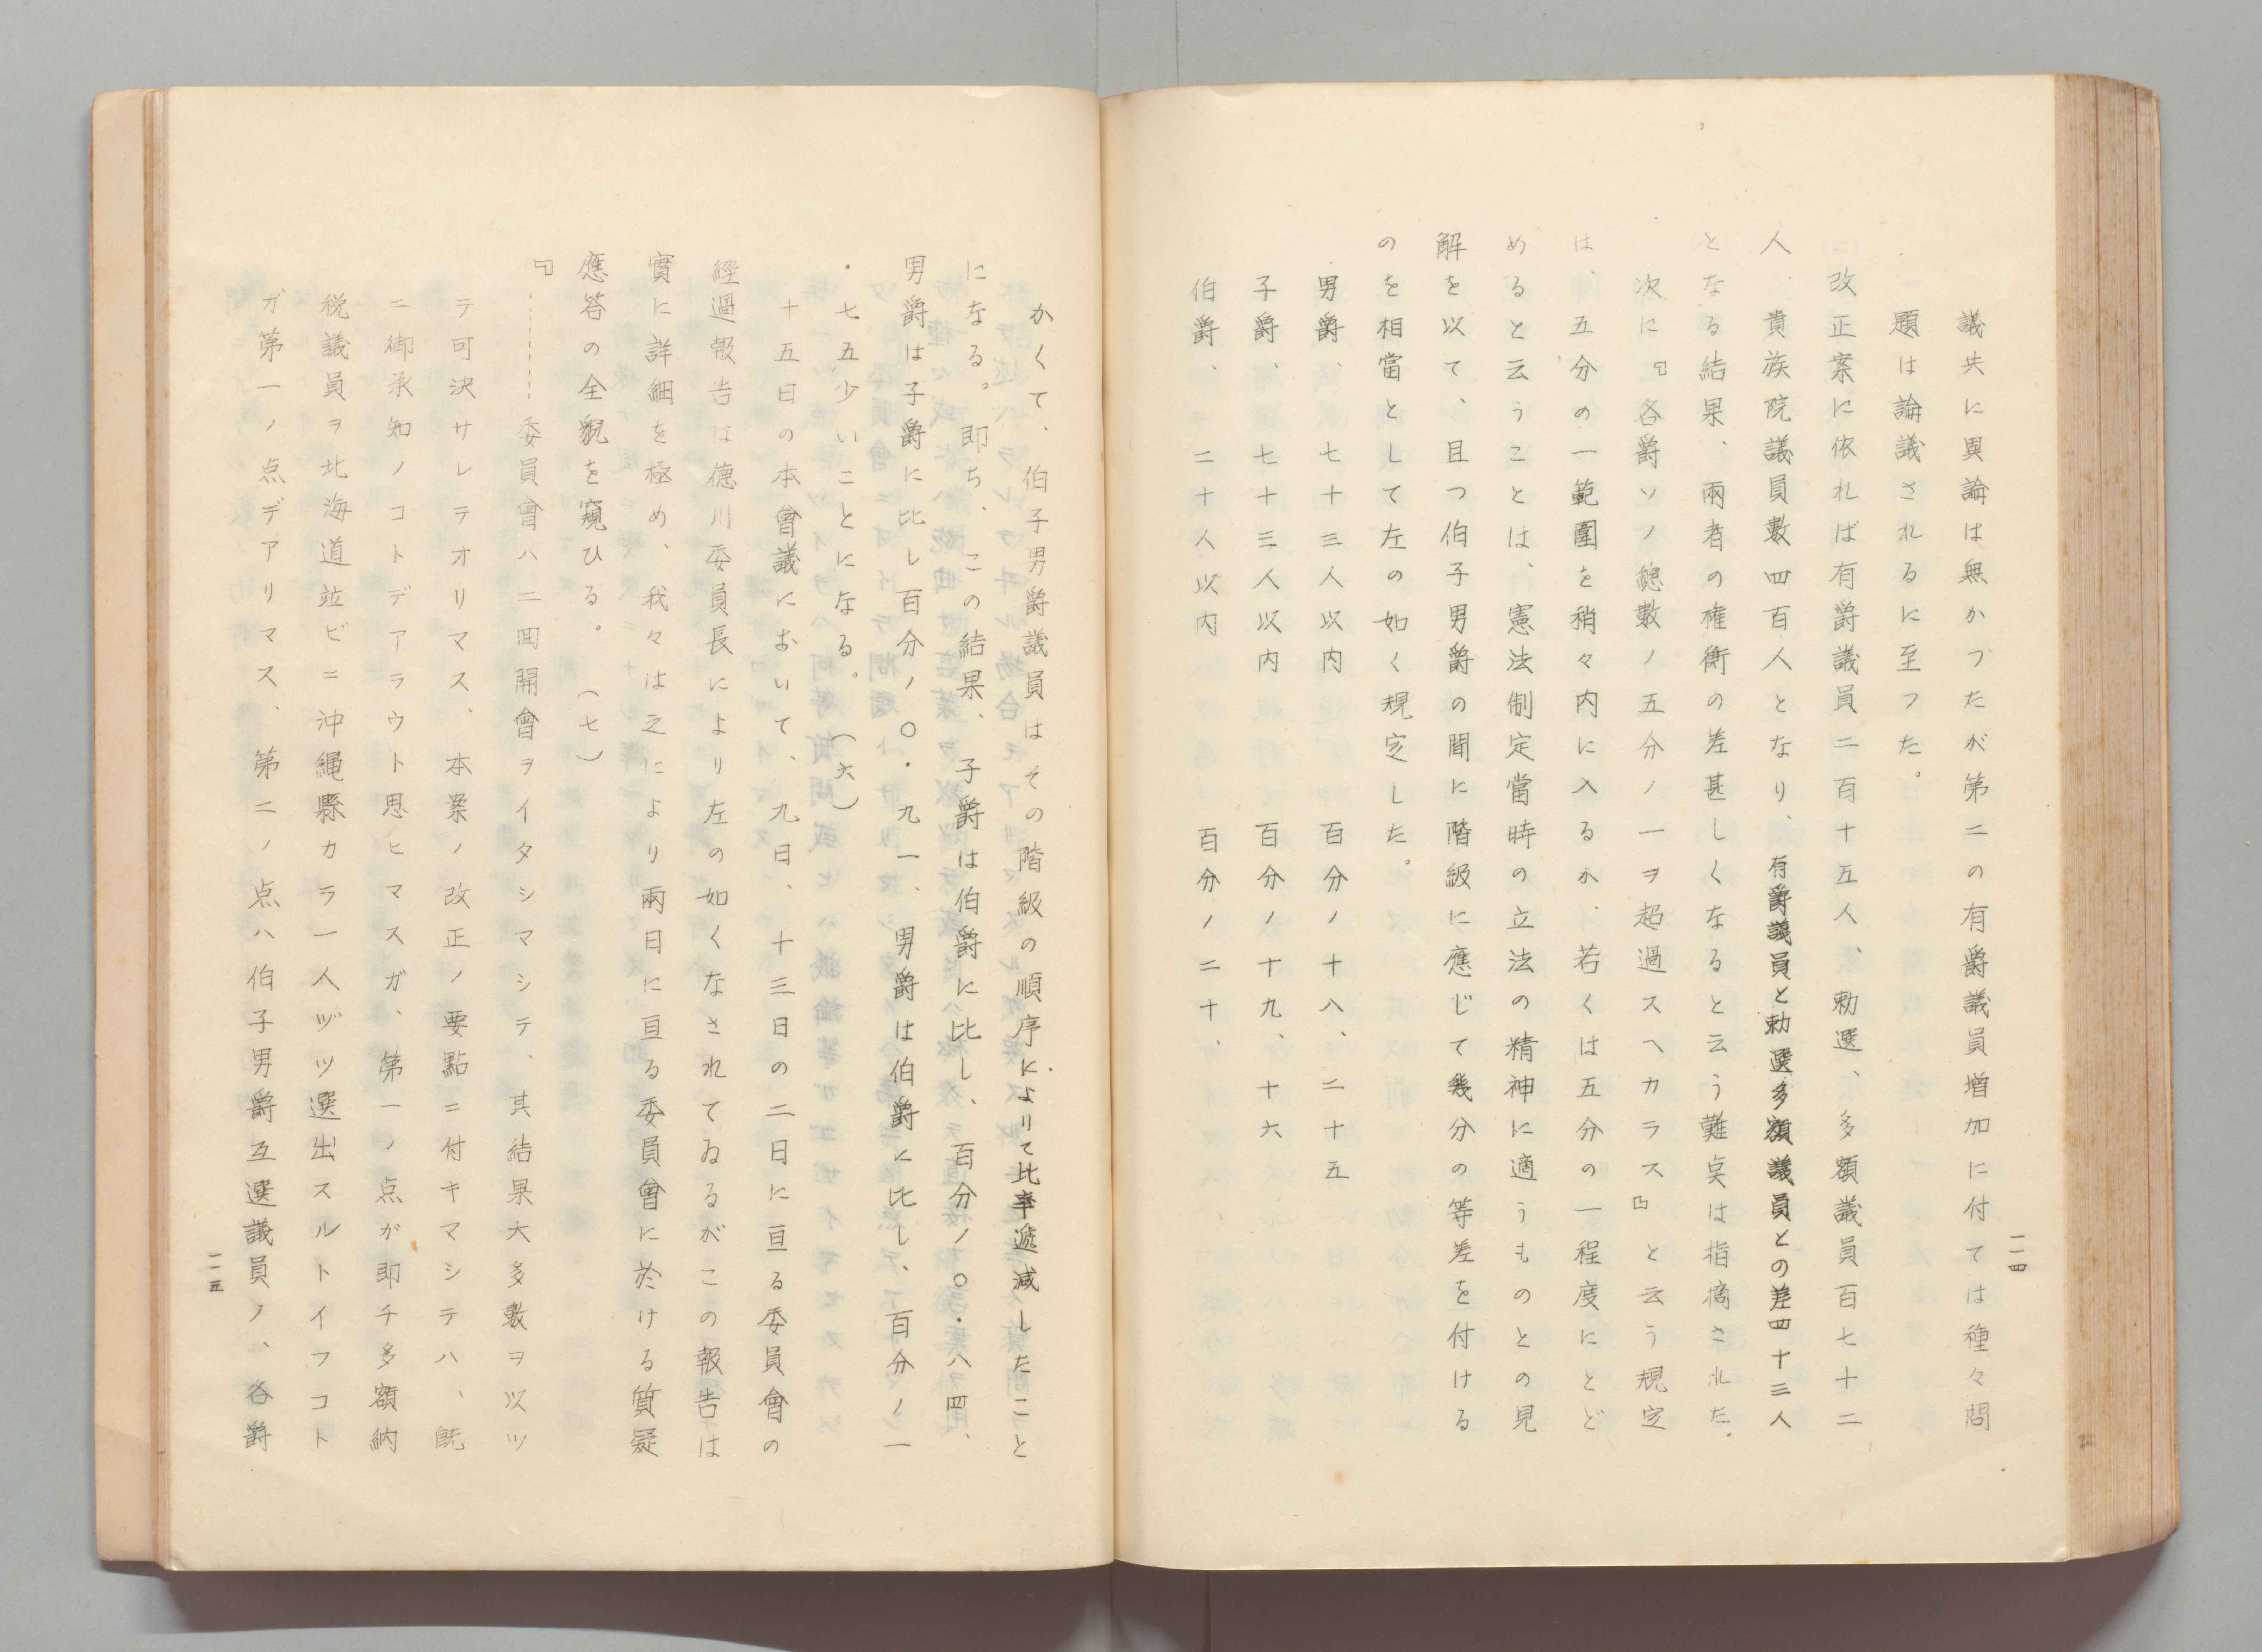 議共に異論は無かつたが第二の有爵議員増加に付ては種々問
題は論議されるに至つた。
改正案に依れば有爵議員二百十五人、勅選、多額議員百七十二
人、貴族院議員數四百人となり、有爵議員と勅選多額議員との差四十三人
となる結果、兩者の権衡の差甚しくなると云う難点は指摘された。
次に『各爵ソノ總數ノ五分ノ一ヲ超過スヘカラス』と云う規定
は、五分の一範圍を稍々内に入るか、若くは五分の一程度にとど
めると云うことは、憲法制定當時の立法の精神に適うものとの見
解を以て、且つ伯子男爵の間に階級に應じて幾分の等差を付ける
のを相當として左の如く規定した。
男爵、　七十三人以内　百分ノ十八、二十五
子爵、　七十三人以内　百分ノ十九、十六
伯爵、　二十人以内　百分ノ二十、
一一四
かくて、伯子男爵議員はその階級の順序によりて比率遞減したこと
になる。即ち、この結果、子爵は伯爵に比し、百分ノ〇・八四、
男爵は子爵に比し百分ノ〇・九一、男爵は伯爵に比し、百分ノ一
・七五少いことになる。（六）
十五日の本會議において、九日、十三日の二日に亘る委員會の
經過報告は徳川委員長により左の如くなされてゐるがこの報告は
實に詳細を極め、我々は之により兩日に亘る委員會に於ける質疑
應答の全貌を窺ひる。（七）
『………委員會ハ二回開會ヲイタシマシテ、其結果大多數ヲ以ツ
テ可決サレテオリマス、本案ノ改正ノ要點ニ付キマシテハ、既
ニ御承知ノコトデアラウト思ヒマスガ、第一ノ点が即チ多額納
税議員ヲ北海道竝ビニ沖縄縣カラ一人ヅツ選出スルトイフコト
ガ第一ノ点デアリマス、第二ノ点ハ伯子男爵互選議員ノ、各爵
一一五